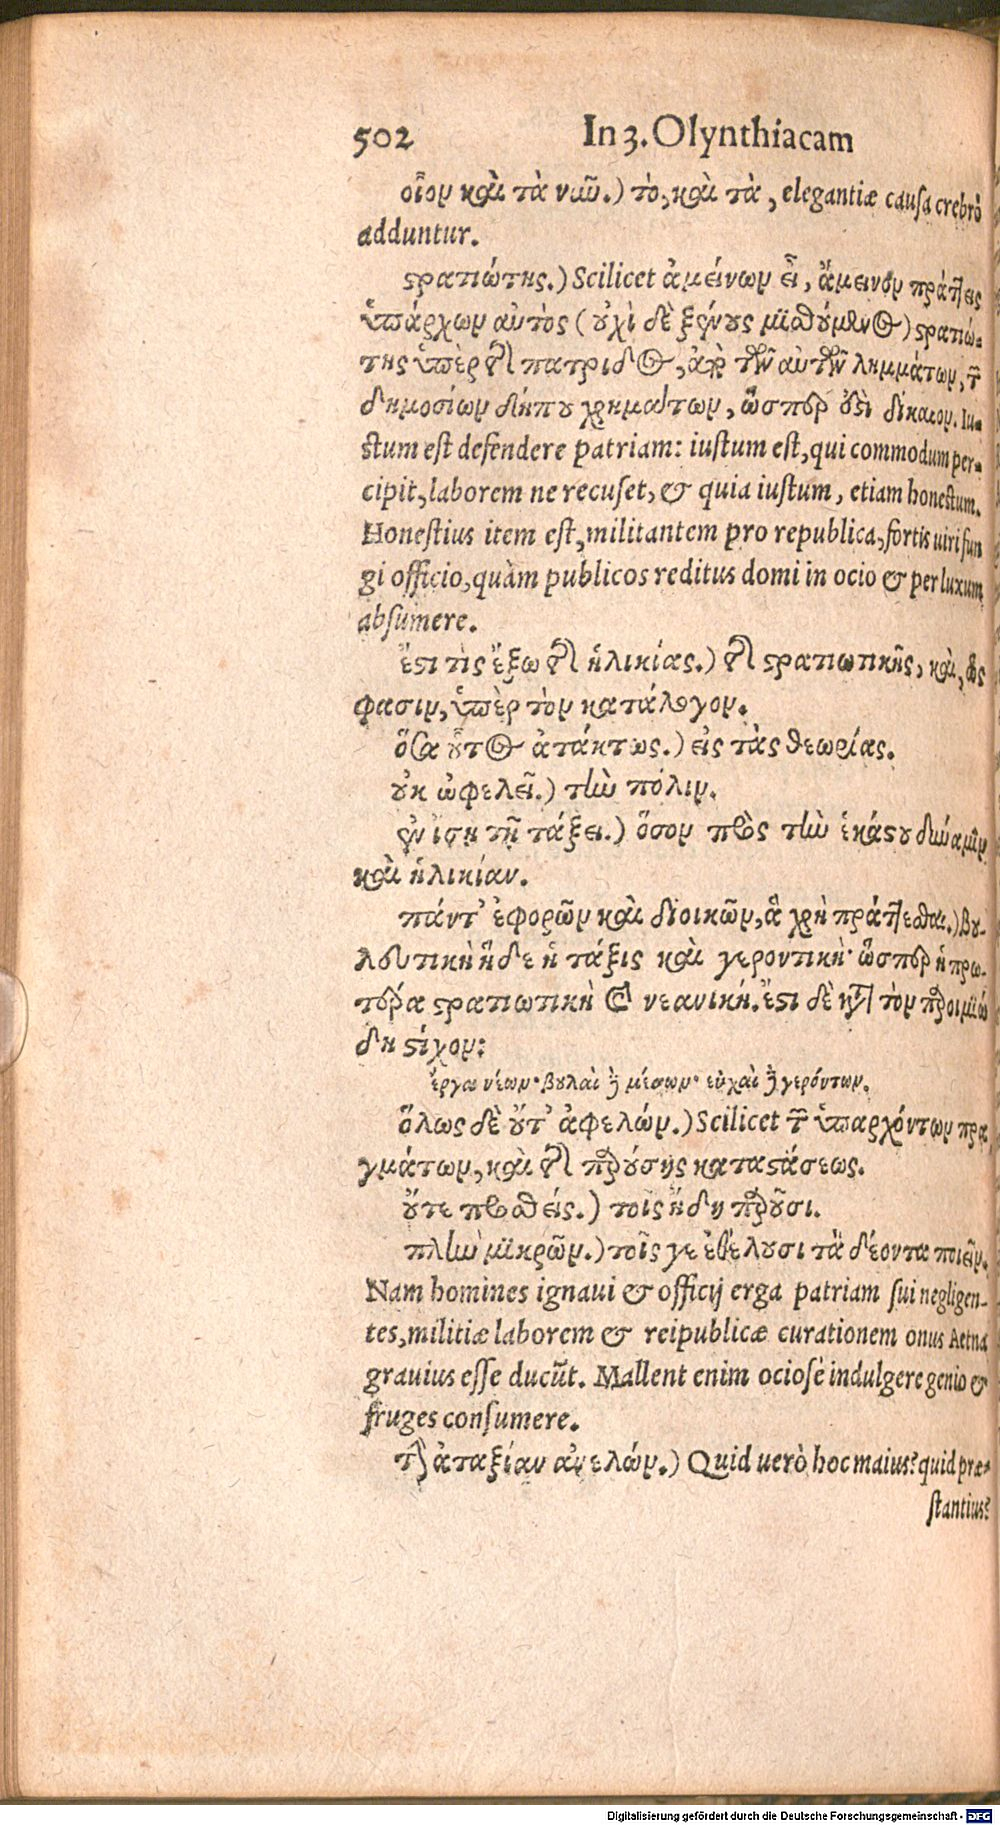 502 In 3. Olynthiacam
οἷον καὶ τὰ νῦν.) τὸ, καὶ τὰ, elegantiæ causa crebrò
adduntur.
στρατιώτης.) Scilicet ἀμείνων εἶ, ἄμεινον πράττεις
ὑπάρχων αὐτὸς (οὐχὶ δὲ ξένους μισθούμενος) στρατιώ-
της ὑπὲρ τῆς πατρίδος, ἀπὸ τῶν αὐτῶν λημμάτων, τῶν
δημοσίων δήπου χρημάτων, ὥσπερ ἐστὶ δίκαιον. Iu-
stum est defendere patriam: iustum est, qui commodum per-
cipit, laborem ne recuset, & quia iustum, etiam honestum.
Honestius item est, militantem pro republica, fortis uiri fun
gi officio, quàm publicos reditus domi in ocio & per luxum
absumere.
ἔστι τὶς ἔξω τῆς ἡλικίας.) τῆς στρατιωτικῆς, καὶ, ὥς
φασιν, ὑπὲρ τὸν κατάλογον.
ὅσα οὗτος ἀτάκτως.) εἰς τὰς θεωρίας.
οὐκ ὠφελεῖ.) τὴν πόλιν.
ἐν ἴσῃ τῇ τάξει.) ὅσον πρὸς τὴν ἑκάστου δύναμιν
καὶ ἡλικίαν.
πάντ' ἐφορῶν καὶ διοικῶν, ἃ χρὴ πράττεσθαι.) βου-
λευτικὴ ἥδε ἡ τάξις καὶ γεροντική· ὥσπερ ἡ πρω-
τέρα στρατιωτικὴ καὶ νεανική. ἔστι δὲ κατὰ τὸν παροιμιώ
δη στίχον:
ἔργα νέων· βουλαὶ δὲ μέσων· εὐχαὶ δὲ γερόντων.
ὅλως δὲ οὔτ' ἀφελών.) Scilicet τῶν ὑπαρχόντων πρα
γμάτων, καὶ τῆς παρούσης καταστάσεως.
οὔτε προσθείς.) τοῖς ἤδη παροῦσι.
πλὴν μικρῶν.) τοῖς γε ἐθέλουσι τὰ δέοντα ποιεῖν.
Nam homines ignaui & officij erga patriam sui negligen-
tes, militiæ laborem & reipublicæ curationem onus Aetna
grauius esse ducũt. Mallent enim ociosè indulgere genio &
fruges consumere.
τὴν ἀταξίαν ἀνελών.) Quid uerò hoc maius? quid præ-
stantius?
Digitalisierung gefördert durch die Deutsche Forschungsgemeinschaft - DFG